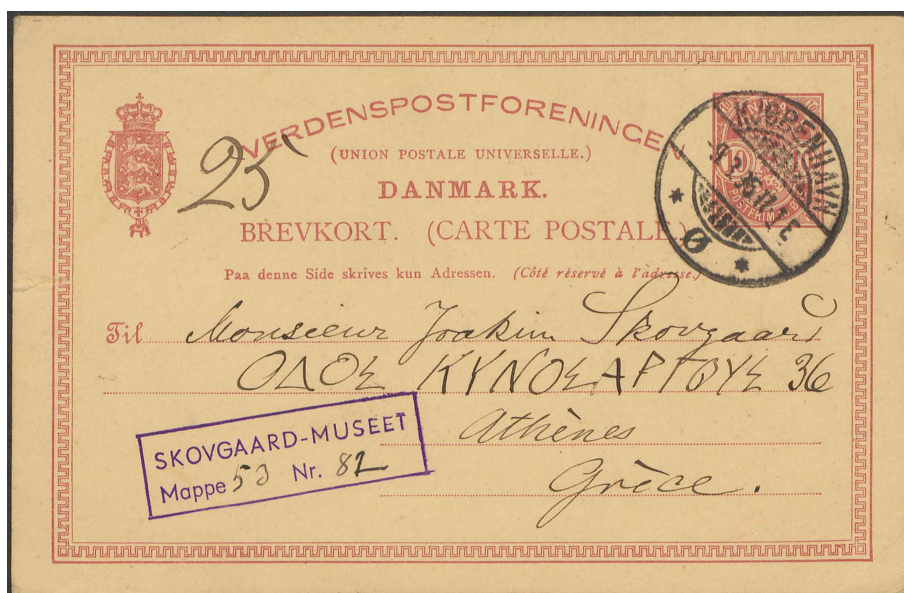 VERDENSPOSTFORENINGEN
25
(UNION POSTALE UNIVERSELLE.)
DANMARK.
BREVKORT. (CARTE POSTALE.)
Paa denne Side skrives kun Adressen. (Côté réservé à l'adresse.)
KJØBENHAVN
Ø
Til Monsieur Joakim Skovgaard
ΟΔΟΣ ΚΥΝΟΣΑΡΓΟΥΣ 36
Athènes
Grèce.
SKOVGAARD-MUSEET
Mappe 53 Nr. 82